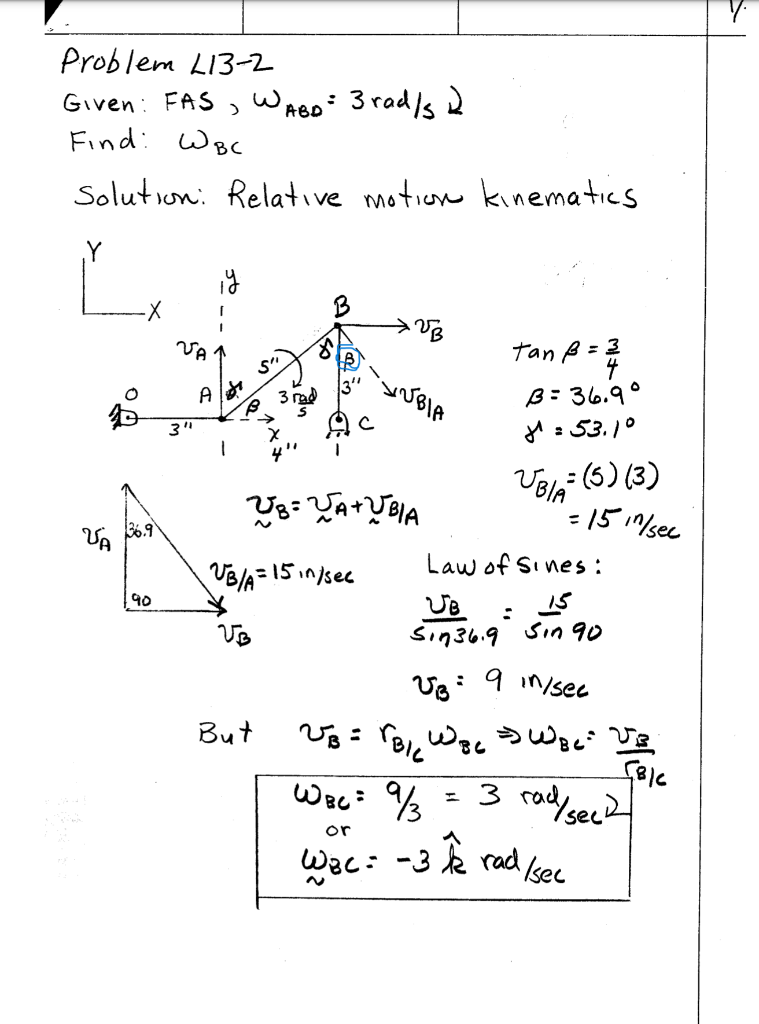 Problem L13-2
Given: FAS, ω ABD = 3 rad/s ↻
Find: ω BC
Solution: Relative motion kinematics
Y
X
y
B
v B
v A
5"
γ
β
A
γ
3 rad/s
3"
v B/A
O
β
C
3"
x
4"
tan β = 3/4
β = 36.9°
γ = 53.1°
v B/A = (5)(3)
= 15 in/sec
v B = v A + v B/A
v A
36.9
v B/A = 15 in/sec
90
v B
Law of Sines:
v B / sin 36.9 = 15 / sin 90
v B = 9 in/sec
But v B = r B/C ω BC ⇒ ω BC = v B / r B/C
ω BC = 9/3 = 3 rad/sec ↻
or
ω BC = -3 k̂ rad/sec